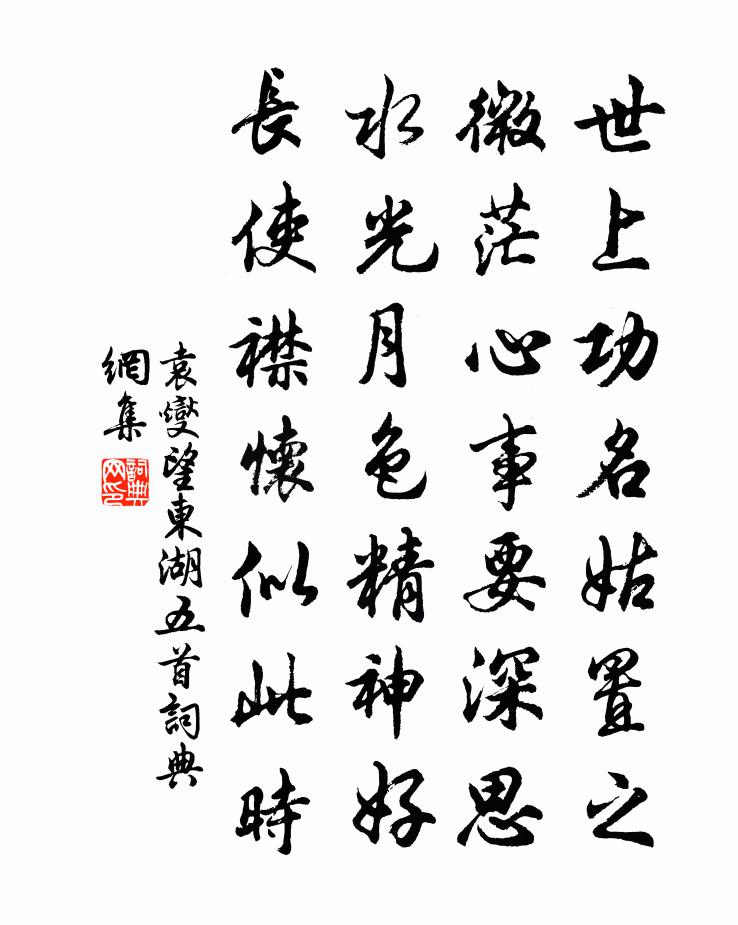 世上功名姑置之
微茫心事要深思
水光月色精神好
長使襟懷似此時
袁燮望東湖五首詞典
網集
詞典
网印